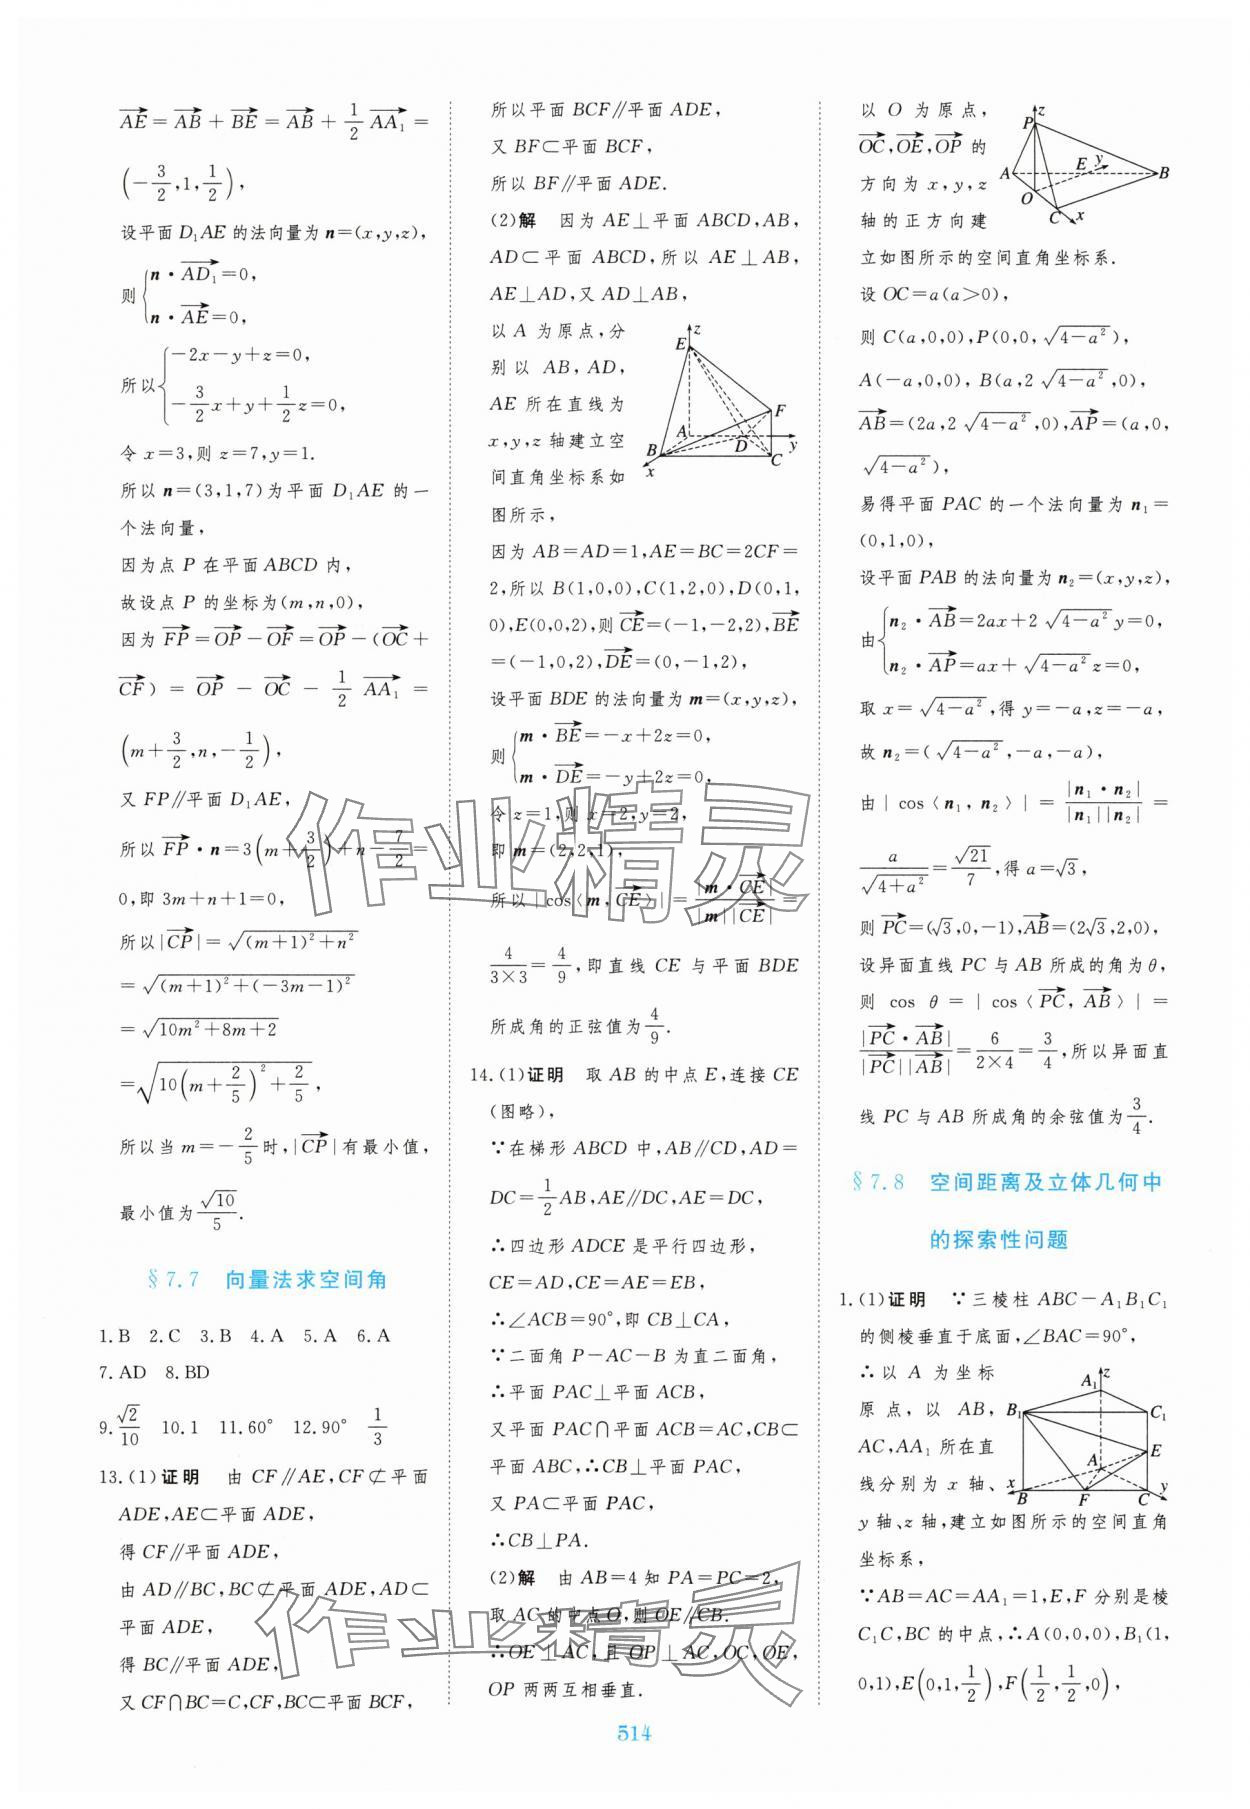 $\overrightarrow{AE}=\overrightarrow{AB}+\overrightarrow{BE}=\overrightarrow{AB}+\frac{1}{2}\overrightarrow{AA_1}=$
$\left(-\frac{3}{2},1,\frac{1}{2}\right)$,
设平面 D₁AE 的法向量为 n=(x,y,z),
则 $\begin{cases} n\cdot\overrightarrow{AD_1}=0, \\ n\cdot\overrightarrow{AE}=0, \end{cases}$
所以 $\begin{cases} -2x-y+z=0, \\ -\frac{3}{2}x+y+\frac{1}{2}z=0, \end{cases}$
令 x=3,则 z=7,y=1.
所以 n=(3,1,7)为平面 D₁AE 的一
个法向量,
因为点 P 在平面 ABCD 内,
故设点 P 的坐标为(m,n,0),
因为 $\overrightarrow{FP}=\overrightarrow{OP}-\overrightarrow{OF}=\overrightarrow{OP}-(\overrightarrow{OC}+$
$\overrightarrow{CF})=\overrightarrow{OP}-\overrightarrow{OC}-\frac{1}{2}\overrightarrow{AA_1}=$
$\left(m+\frac{3}{2},n,-\frac{1}{2}\right)$,
又 FP∥平面 D₁AE,
所以 $\overrightarrow{FP}\cdot n=3\left(m+\frac{3}{2}\right)+n-\frac{7}{2}=$
0,即 3m+n+1=0,
所以$|\overrightarrow{CP}|=\sqrt{(m+1)^2+n^2}$
$=\sqrt{(m+1)^2+(-3m-1)^2}$
$=\sqrt{10m^2+8m+2}$
$=\sqrt{10\left(m+\frac{2}{5}\right)^2+\frac{2}{5}}$,
所以当 $m=-\frac{2}{5}$时,$|\overrightarrow{CP}|$有最小值,
最小值为$\frac{\sqrt{10}}{5}$.
§7.7 向量法求空间角
1.B 2.C 3.B 4.A 5.A 6.A
7.AD 8.BD
9.$\frac{\sqrt{2}}{10}$ 10.1 11.60° 12.90° $\frac{1}{3}$
13.(1)证明 由 CF∥AE,CF⊄平面
ADE,AE⊂平面 ADE,
得 CF∥平面 ADE,
由 AD∥BC,BC⊄平面 ADE,AD⊂
平面 ADE,
得 BC∥平面 ADE,
又 CF∩BC=C,CF,BC⊂平面 BCF,
所以平面 BCF∥平面 ADE,
又 BF⊂平面 BCF,
所以 BF∥平面 ADE.
(2)解 因为 AE⊥平面 ABCD,AB,
AD⊂平面 ABCD,所以 AE⊥AB,
AE⊥AD,又 AD⊥AB,
以 A 为原点,分
别以 AB,AD,
AE 所在直线为
x,y,z 轴建立空
间直角坐标系如
图所示,
z
E
F
A
B
D
C
x
y
因为 AB=AD=1,AE=BC=2CF=
2,所以 B(1,0,0),C(1,2,0),D(0,1,
0),E(0,0,2),则 $\overrightarrow{CE}=(-1,-2,2),\overrightarrow{BE}$
$=(-1,0,2),\overrightarrow{DE}=(0,-1,2)$,
设平面 BDE 的法向量为 m=(x,y,z),
则 $\begin{cases} m\cdot\overrightarrow{BE}=-x+2z=0, \\ m\cdot\overrightarrow{DE}=-y+2z=0, \end{cases}$
令 z=1,则 x=2,y=2,
即 m=(2,2,1),
所以$|\cos\langle m,\overrightarrow{CE}\rangle|=\frac{|m\cdot\overrightarrow{CE}|}{|m||\overrightarrow{CE}|}=$
$\frac{4}{3×3}=\frac{4}{9}$,即直线 CE 与平面 BDE
所成角的正弦值为$\frac{4}{9}$.
14.(1)证明 取 AB 的中点 E,连接 CE
(图略),
∵在梯形 ABCD 中,AB∥CD,AD=
DC=$\frac{1}{2}$AB,AE∥DC,AE=DC,
∴四边形 ADCE 是平行四边形,
CE=AD,CE=AE=EB,
∴∠ACB=90°,即 CB⊥CA,
∵二面角 P-AC-B 为直二面角,
∴平面 PAC⊥平面 ACB,
又平面 PAC∩平面 ACB=AC,CB⊂
平面 ABC,∴CB⊥平面 PAC,
又 PA⊂平面 PAC,
∴CB⊥PA.
(2)解 由 AB=4 知 PA=PC=2,
取 AC 的中点 O,则 OE∥CB.
∴OE⊥AC,且 OP⊥AC,OC,OE,
OP 两两互相垂直.
以 O 为原点,
$\overrightarrow{OC},\overrightarrow{OE},\overrightarrow{OP}$ 的
方向为 x,y,z
轴的正方向建
立如图所示的空间直角坐标系.
z
P
A
E
y
B
O
C
x
设 OC=a(a>0),
则 C(a,0,0),P(0,0,$\sqrt{4-a^2}$),
A(-a,0,0),B(a,2$\sqrt{4-a^2}$,0),
$\overrightarrow{AB}=(2a,2\sqrt{4-a^2},0),\overrightarrow{AP}=(a,0,$
$\sqrt{4-a^2})$,
易得平面 PAC 的一个法向量为 n₁=
(0,1,0),
设平面 PAB 的法向量为 n₂=(x,y,z),
由 $\begin{cases} n_2\cdot\overrightarrow{AB}=2ax+2\sqrt{4-a^2}y=0, \\ n_2\cdot\overrightarrow{AP}=ax+\sqrt{4-a^2}z=0, \end{cases}$
取 x=$\sqrt{4-a^2}$,得 y=-a,z=-a,
故 n₂=($\sqrt{4-a^2}$,-a,-a),
由$|\cos\langle n_1,n_2\rangle|=\frac{|n_1\cdot n_2|}{|n_1||n_2|}=$
$\frac{a}{\sqrt{4+a^2}}=\frac{\sqrt{21}}{7}$,得 a=$\sqrt{3}$,
则 $\overrightarrow{PC}=(\sqrt{3},0,-1),\overrightarrow{AB}=(2\sqrt{3},2,0)$,
设异面直线 PC 与 AB 所成的角为 θ,
则 $\cos θ=|\cos\langle\overrightarrow{PC},\overrightarrow{AB}\rangle|=$
$\frac{|\overrightarrow{PC}\cdot\overrightarrow{AB}|}{|\overrightarrow{PC}||\overrightarrow{AB}|}=\frac{6}{2×4}=\frac{3}{4}$,所以异面直
线 PC 与 AB 所成角的余弦值为$\frac{3}{4}$.
§7.8 空间距离及立体几何中
的探索性问题
1.(1)证明 ∵三棱柱 ABC-A₁B₁C₁
的侧棱垂直于底面,∠BAC=90°,
∴以 A 为坐标
原点,以 AB,
AC,AA₁ 所在直
线分别为 x 轴、
y 轴、z 轴,建立如图所示的空间直角
坐标系,
z
A₁
B₁
C₁
E
A
x
B
F
C
y
∵AB=AC=AA₁=1,E,F 分别是棱
C₁C,BC 的中点,∴A(0,0,0),B₁(1,
0,1),$E\left(0,1,\frac{1}{2}\right),F\left(\frac{1}{2},\frac{1}{2},0\right)$,
作业精灵
作业精灵
514